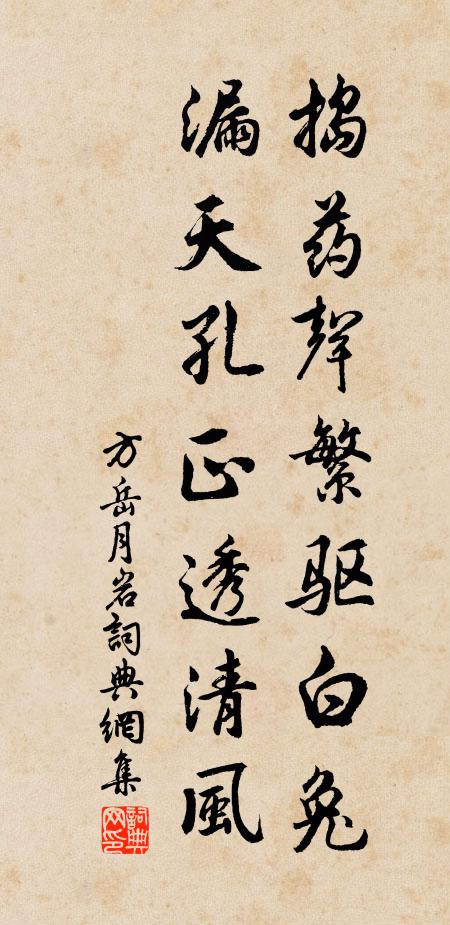 捣药聲繁驱白兔
漏天孔正透清風
方岳月岩詞典網集
詞典网印